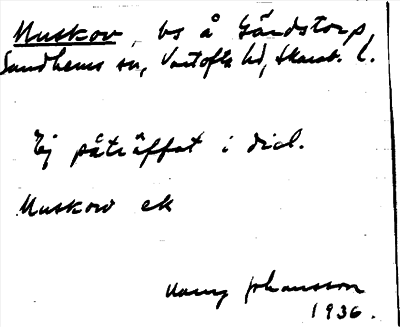 Muskov, bs å Gärdstorp,
Sandhems sn, Vartofta hd, Skarab. l.
Ej påträffat i dial.
Muskow ek
Harry Johansson
1936.